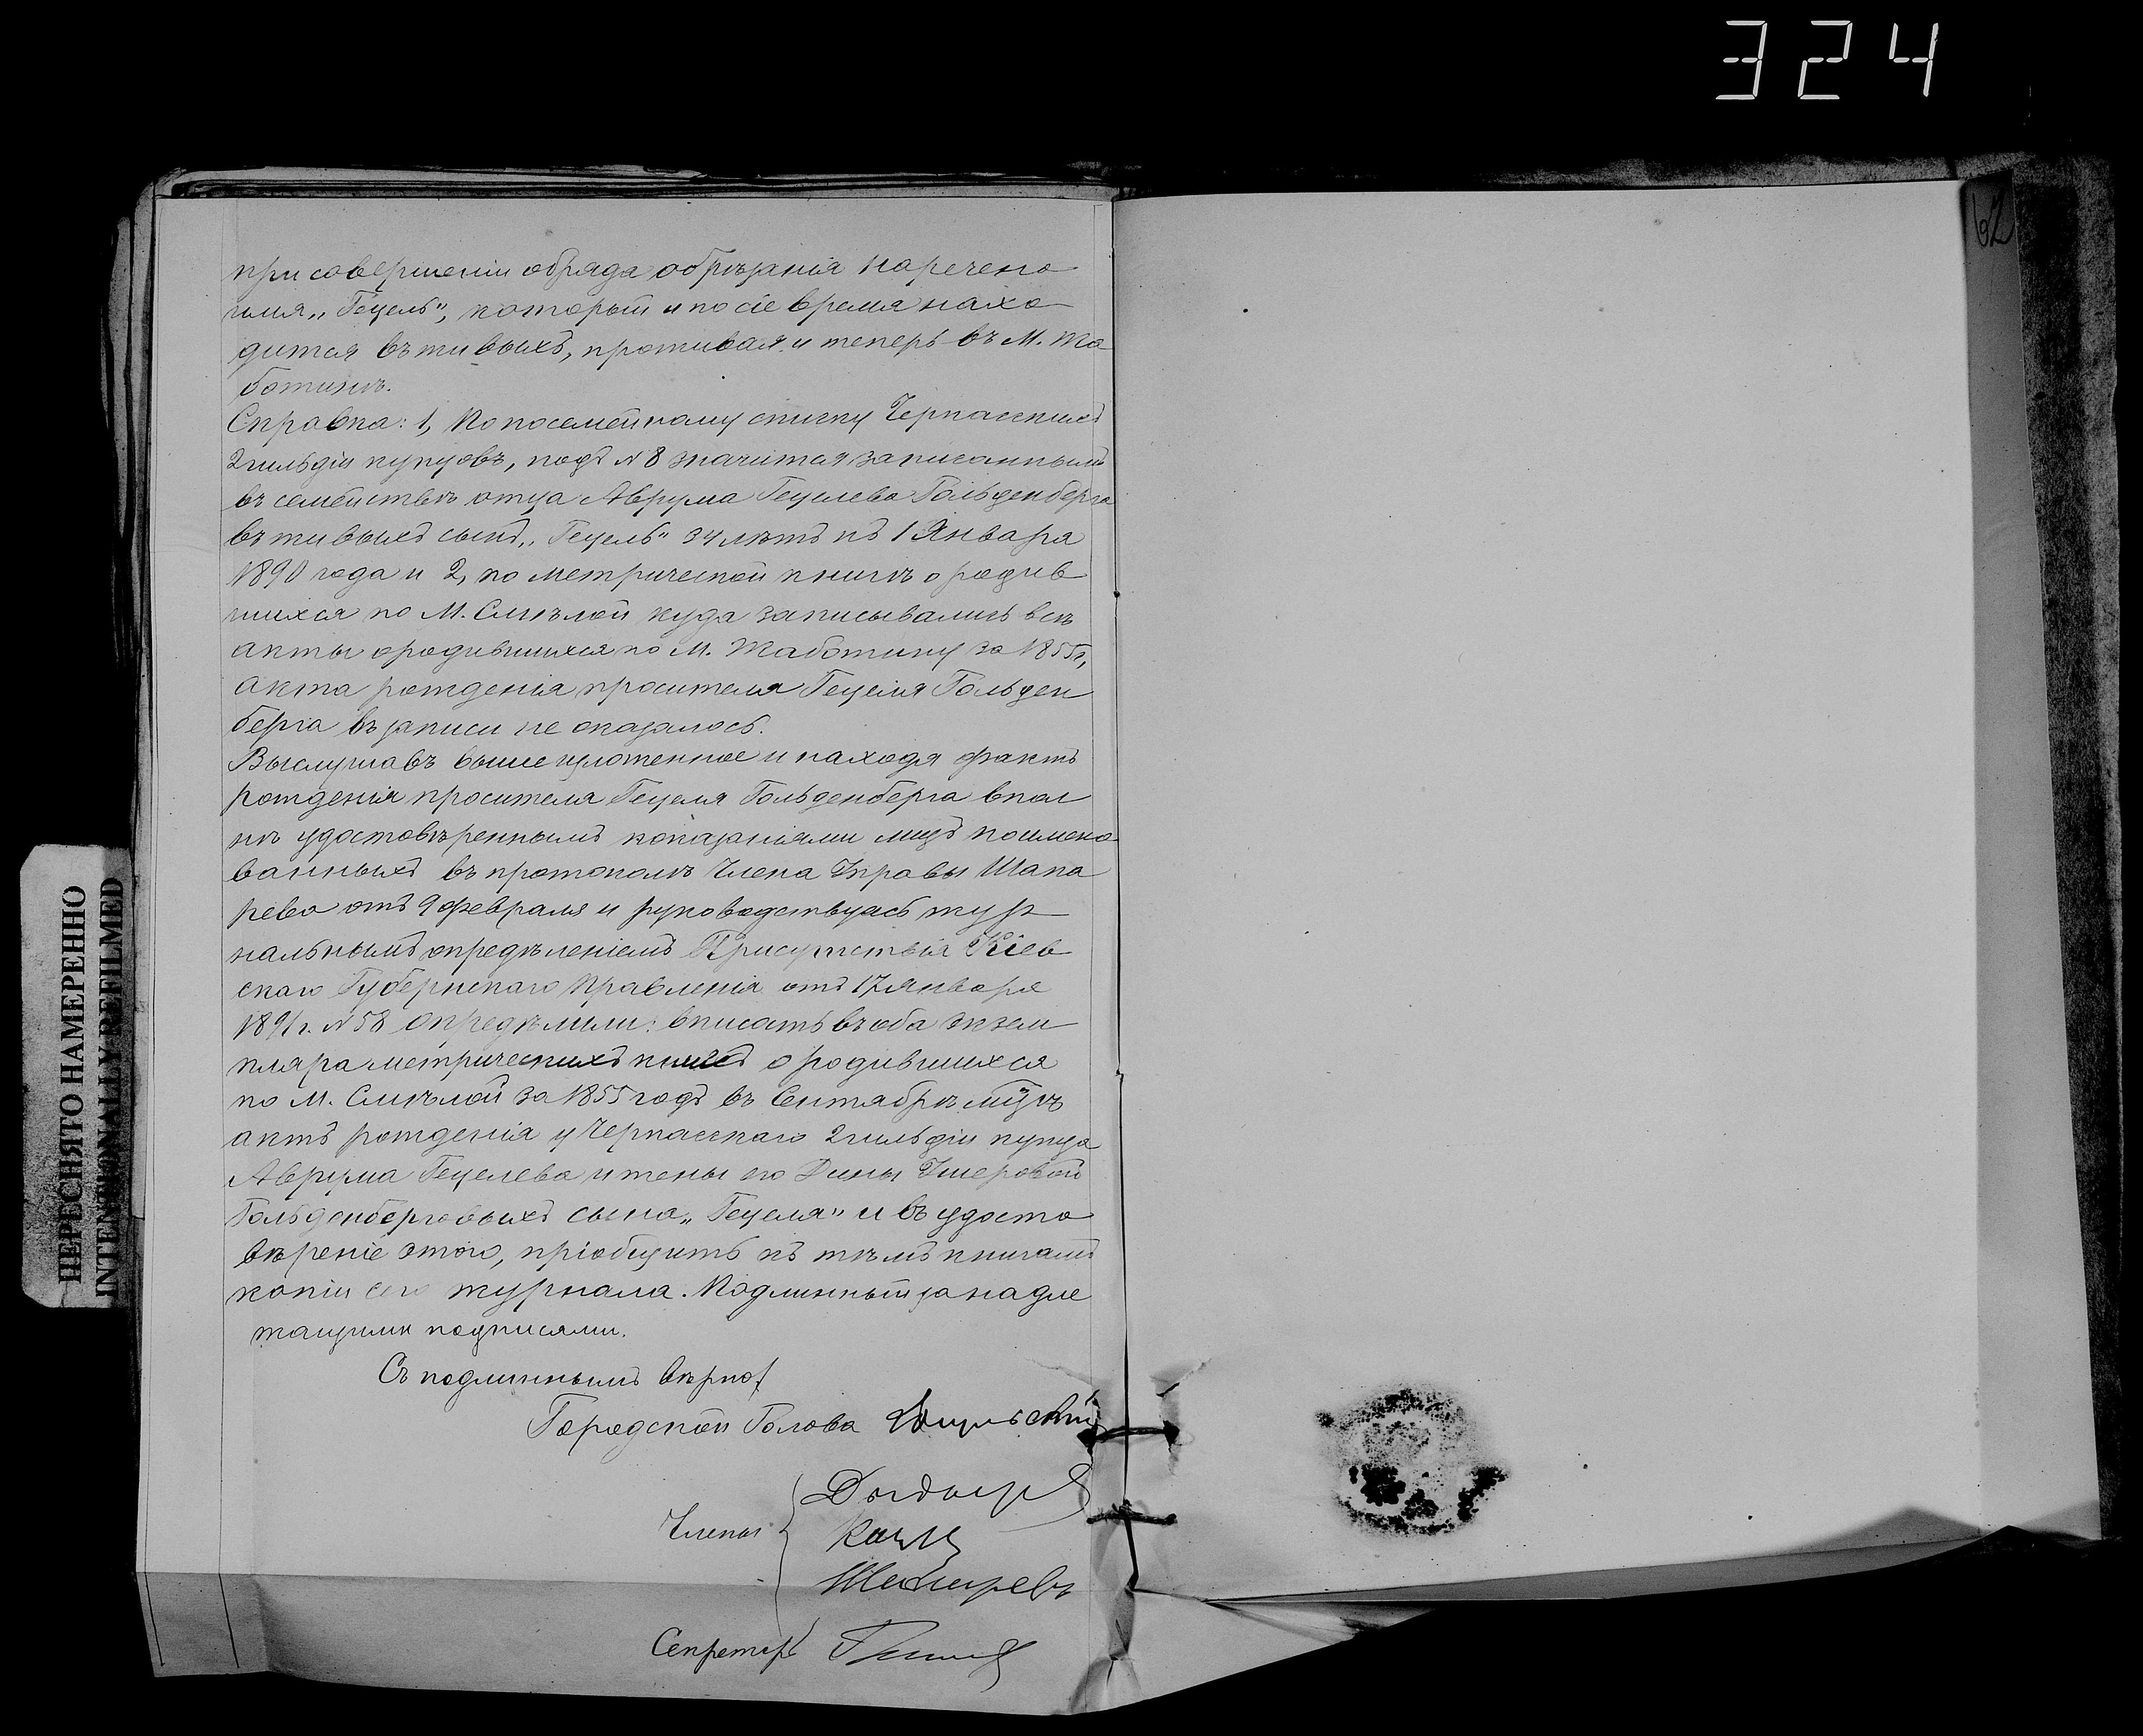 324
62
при совершеніи обряда обрѣзанія наречено
имя „Гецель", который и по сіе время нахо-
дится въ живыхъ, проживая и теперь въ М. Жа
ботинѣ.
Справка: 1, По посемейному списку Черкасскихъ
2 гильдіи купцовъ, подъ № 8 значится записаннымъ
въ семействѣ отца Аврума Гецелева Гольденберга
въ живыхъ сынъ „Гецель" 34 лѣтъ къ 1 Января
1890 года и 2, по метрической книгѣ о родив
шихся по М. Смѣлой куда записывались всѣ
акты о родившихся по М. Жаботину за 1855 г,
акта рожденія просителя Гецеля Гольден
берга въ записи не оказалось.
Выслушавъ вышеизложенное и находя фактъ
рожденія просителя Гецеля Гольденберга впол
нѣ удостовѣреннымъ показаніями лицъ поимено-
ванныхъ въ протоколѣ Члена Управы Шапа
рева отъ 9 февраля и руководствуясь жур-
нальнымъ опредѣленіемъ Присутствія Кіев
скаго Губернскаго Правленія отъ 17 января
1891 г. № 58 опредѣлили: вписать въ оба экзем
пляра метрическихъ книгъ о родившихся
по М. Смѣлой за 1855 годъ въ Сентябрѣ м-цѣ
актъ рожденія у Черкасскаго 2 гильдіи купца
Аврума Гецелева и жены его Дины Ушеровой
Гольденберговыхъ сына „Гецеля" и въ удосто
вѣреніе этого, пріобщить къ тѣмъ книгамъ
копіи сего журнала. Подлинный за надле
жащими подписями.
Съ подлиннымъ вѣрно:
Городской Голова
Члены
Шапаревъ
Секретарь
ПЕРЕСНЯТО НАМЕРЕННО
INTENTIONALLY REFILMED